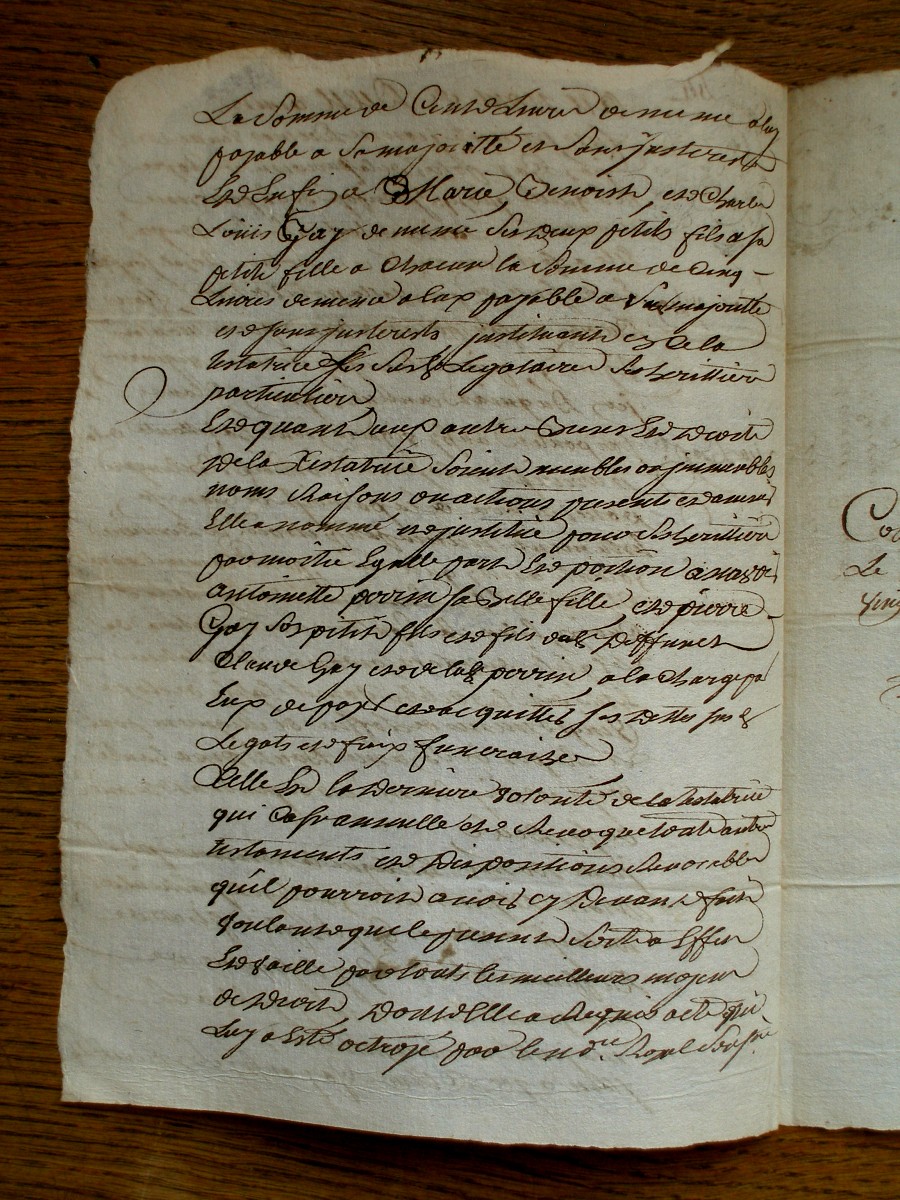 La Somme de Cent Livres de meme a luy
payable a Sa majoritté et Sans jnterests
Et Enfin a Marie, Benoist, et Charle
Louis Gay de meme Ses deux petits fils a sa
petite fille a chacun la Somme de Cinq
Livres de meme a eux payable a Sa majoritté
et sans jnterests, justituant la
testatrice Ses Legataires Ses herittiers
particuliers
Et quant aux autres Biens Et Droits
De la Testatrice Soient meubles ou jmmeubles
noms Raisons ou actions presents et avenir
Elle a nommé et justitué pour Ses herittiers
par moitié Egalle part Et portion
antoinette perrin sa Belle fille et pierre
Gay Son petit fils et fils dud Deffunct
Claude Gay et de lad perrin, a la charge par
Eux de payer et acquitter Ses Dettes Susd
Legats et fraix funeraires
Telle Est la Derniere Volonté de la testatrice
qui Casse annulle et Revoque tout autre
testaments et Dispositions Revocables
qu'il pourroit avoir cy Devant fait
Voulant que le present Sorte a Effet
Et Vaille par touts les meilleurs moyens
de Droit, Dont Elle a Requis acte qui
Luy a Esté octroyé par le no.re Royal Sous.né
Co
Le
Ving